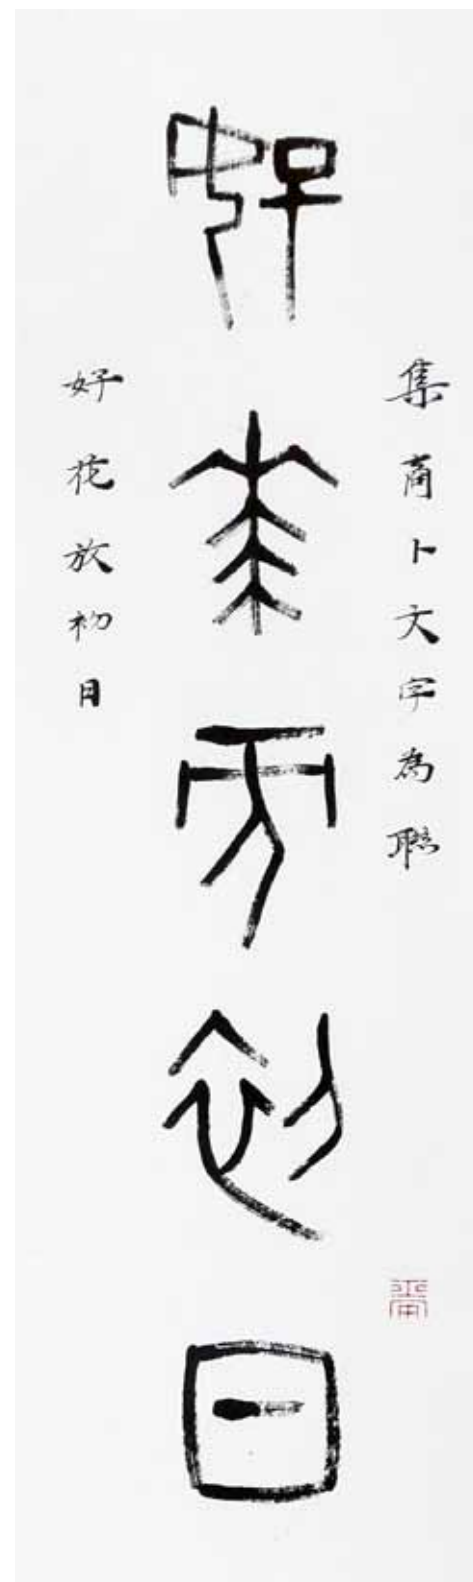 集商卜文字為聯
好花方初日
好花放初日